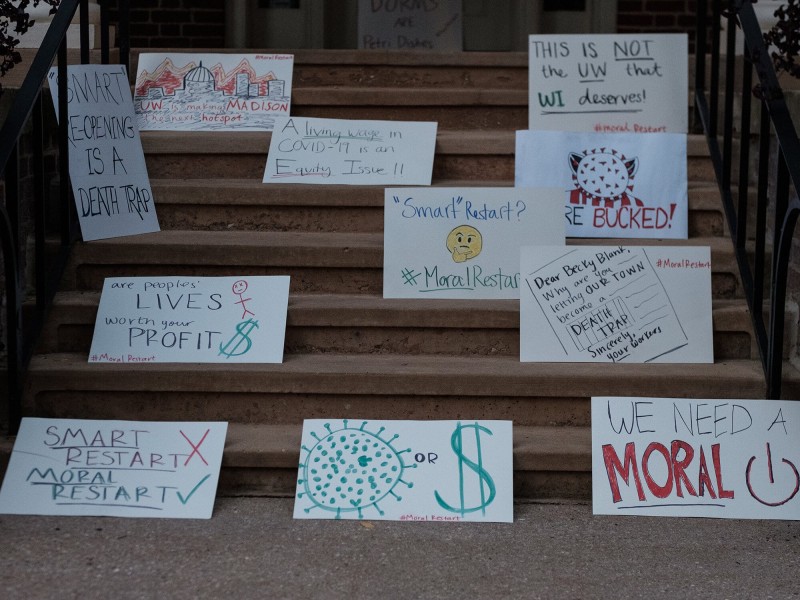 DORMS
ARE
Petri Dishes
"SMART"
REOPENING
IS A
DEATH TRAP
#Moral Restart
UW is making MADISON
the next hotspot
A living wage in
COVID-19 is an
Equity Issue!!
THIS IS NOT
the UW that
WI deserves!
#moral Restart
RE BUCKED!
"Smart" Restart?
#MoralRestar
Dear Becky Blank,
Why are you
letting OUR TOWN
become a
DEATH
TRAP
Sincerely,
your workers
#Moral Restart
are peoples'
LIVES
worth your
PROFIT $
#Moral Restart
SMART
RESTART X
MORAL
RESTART ✓
OR $
#Moral Restart
WE NEED A
MORAL